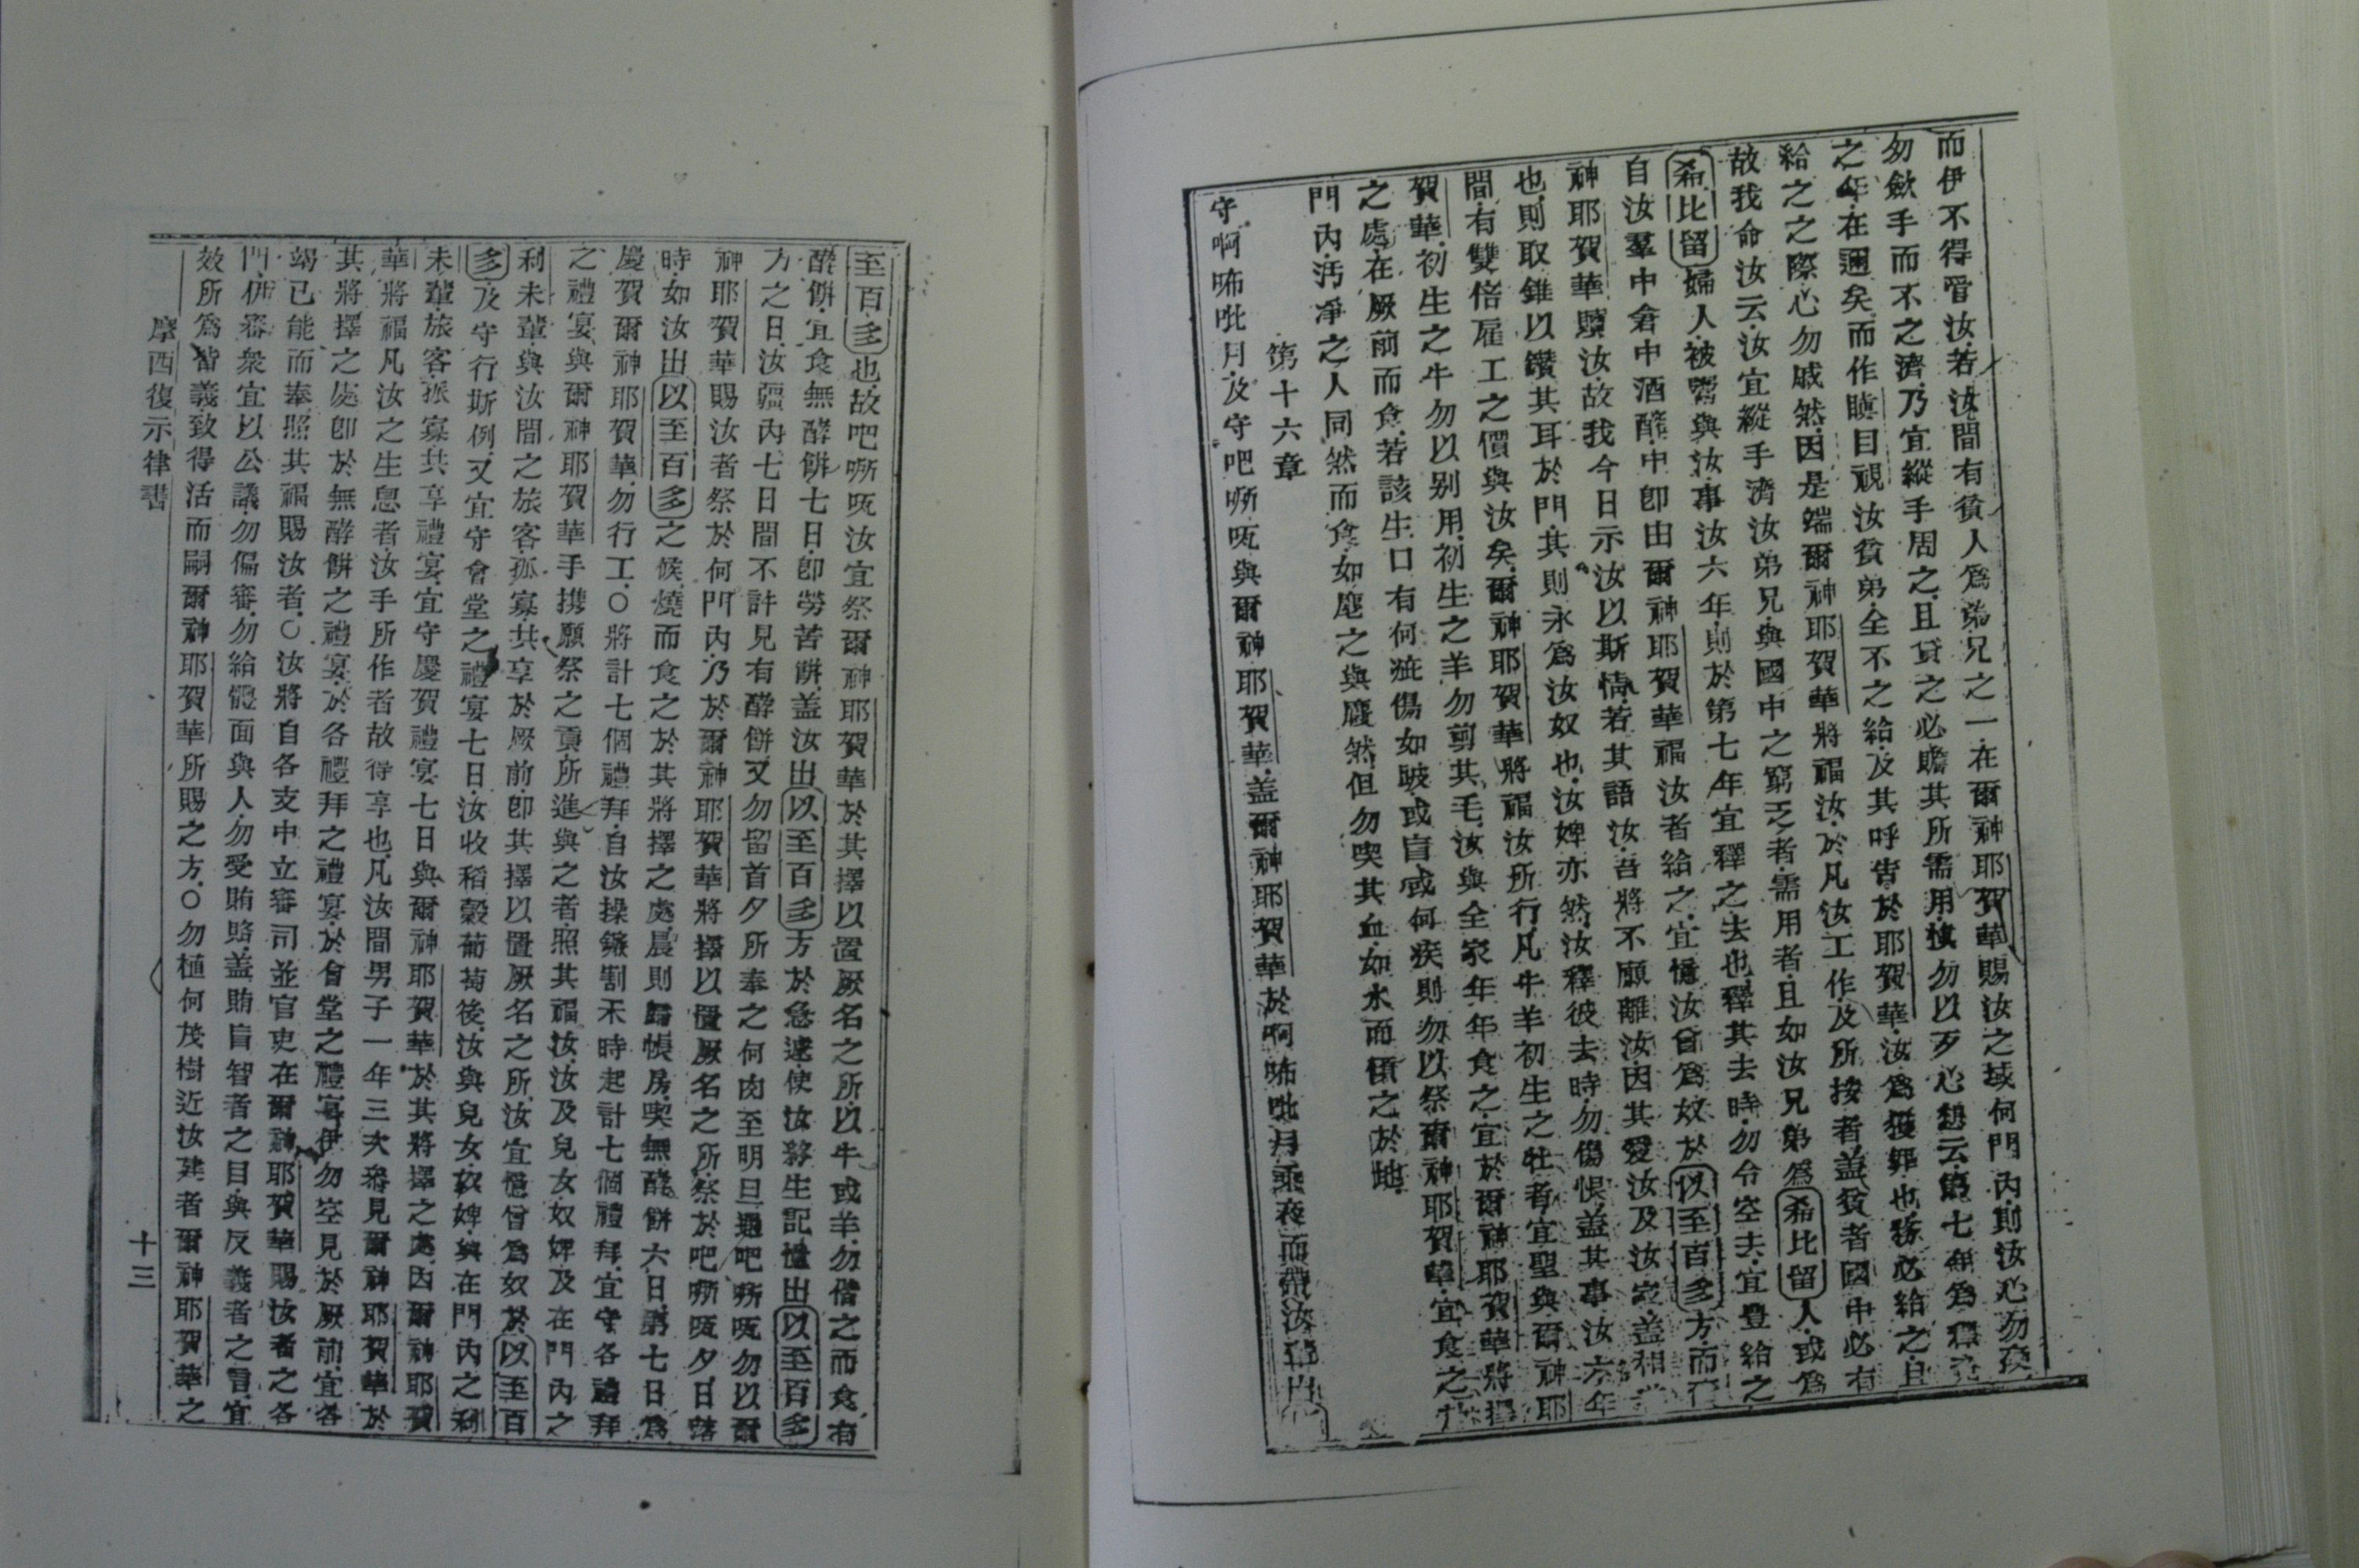 而伊不得罾汝.若汝間有貧人為弟兄之一.在爾神耶賀華賜汝之域何門內.則汝心勿
勿歛手而不之濟.乃宜縱手周之.且貸之必贍其所需用.慎勿以歹心想云.第七年為釋
之年.在邇矣.而作瞋目視汝貧弟.全不之給.及其呼告於耶賀華.汝為獲罪也.務必給之.且
給之之際.心勿戚然.因是端爾神耶賀華將福汝.於凡汝工作.及所按者.蓋貧者國中必有
故我命汝云.汝宜縱手濟汝弟兄.與國中之窮乏者.需用者.且如汝兄弟為希比留人.或為
希比留婦人.被鬻與汝.事汝六年.則於第七年宜釋之去也.釋其去時.勿令空去.宜豊給之
自汝羣中倉中酒醡中.即由爾神耶賀華福汝者給之.宜憶汝曾為奴於以至百多方.而
神耶賀華贖汝.故我今日示汝以斯情.若其語汝.吾將不願離汝.因其愛汝及汝家.蓋相
也.則取錐以鑽其耳於門.其則永為汝奴也.汝婢亦然.汝釋彼去時.勿傷悞.蓋其事汝六年
間.有雙倍雇工之價與汝矣.爾神耶賀華將福汝所行.凡牛羊初生之牡者.宜聖與爾神耶
賀華.初生之牛勿以别用.初生之羊勿剪其毛.汝與全家年年食之.宜於爾神耶賀華將擇
之處.在厥前而食.若該生口有何疵傷如跛.或盲.或何疾.則勿以祭爾神耶賀華.宜食之
門內.汚淨之人同然而食.如麀之與麎然.但勿喫其血.如水而傾之於地.
第十六章
守啊咘吡月.及守吧㗭㕸與爾神耶賀華.蓋爾神耶賀華於啊咘吡月乘夜而帶汝出
至百多也.故吧㗭㕸汝宜祭爾神耶賀華於其擇以置厥名之所.以牛或羊.勿偕之而食有
酵餅.宜食無酵餅七日.即勞苦餅.蓋汝出以至百多方於急速.使汝將生記憶出以至百多
方之日.汝疆內七日間不許見有酵餅.又勿留首夕所奉之何肉至明旦.過吧㗭㕸勿以爾
神耶賀華賜汝者祭於何門內.乃於爾神耶賀華將擇以置厥名之所.祭於吧㗭㕸夕.日落
時.如汝出以至百多之候.燒而食之於其將擇之處.晨則歸帳房.喫無酵餅六日.第七日為
慶賀爾神耶賀華.勿行工.〇將計七個禮拜.自汝操鐮割禾時起計七個禮拜.宜守各禮拜
之禮宴.與爾神耶賀華手携願祭之貢.所進與之者.照其福汝.汝及兒女奴婢及在門內之
利未輩.與汝間之旅客孤寡.共享於厥前.即其擇以置厥名之所.汝宜憶曾為奴於以至百
多.及守行斯例.又宜守會堂之禮宴七日.汝收稻穀葡萄後.汝與兒女奴婢.與在門內之利
未輩.旅客.孤寡共享禮宴.宜守慶賀禮宴七日與爾神耶賀華.於其將擇之處.因爾神耶賀
華將福凡汝之生息者.汝手所作者.故得享也.凡汝間男子一年三次叅見爾神耶賀華於
其將擇之處.即於無酵餅之禮宴.於各禮拜之禮宴.於會堂之禮宴.伊勿空見於厥前.宜各
竭己能而奉.照其福賜汝者.〇汝將自各支中立審司並官吏在爾神耶賀華賜汝者之各
門.俾審衆宜以公議.勿偏審.勿給體面與人.勿愛賄賂.蓋賄盲智者之目.與反義者之言.宜
效所為皆義.致得活而嗣爾神耶賀華所賜之方.〇勿植何茂樹近汝建者爾神耶賀華之
摩西復示律書
十三